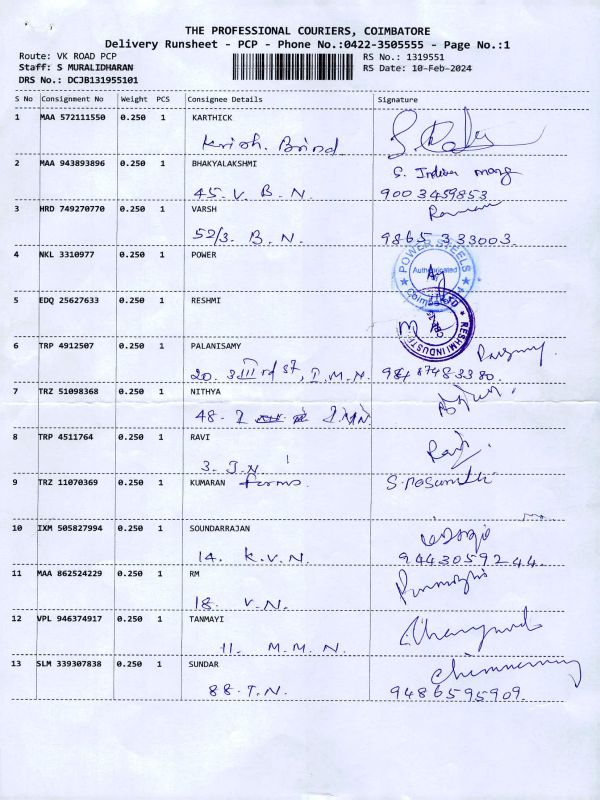 THE PROFESSIONAL COURIERS, COIMBATORE
Delivery Runsheet - PCP - Phone No.:0422-3505555 - Page No.:1
Route: VK ROAD PCP
Staff: S MURALIDHARAN
DRS No.: DCJB131955101
RS No.: 1319551
RS Date: 10-Feb-2024
S No Consignment No Weight PCS Consignee Details Signature
1 MAA 572111550 0.250 1 KARTHICK
2 MAA 943893896 0.250 1 BHAKYALAKSHMI
45. V. B. N. 9003459853
3 HRD 749270770 0.250 1 VARSH
52/3. B. N. 9865333003
4 NKL 3310977 0.250 1 POWER
POWER STEELS
Coimbatore
5 EDQ 25627633 0.250 1 RESHMI
RESHMI INDUSTRIES
6 TRP 4912507 0.250 1 PALANISAMY
7 TRZ 51098368 0.250 1 NITHYA
48.
8 TRP 4511764 0.250 1 RAVI
3. J.N Ravi
9 TRZ 11070369 0.250 1 KUMARAN farms
10 IXM 505827994 0.250 1 SOUNDARRAJAN
14. K.V.N. 9443059244.
11 MAA 862524229 0.250 1 RM
18. V.N.
12 VPL 946374917 0.250 1 TANMAYI
11. M.M.N.
13 SLM 339307838 0.250 1 SUNDAR
88.T.N. 9486595909.